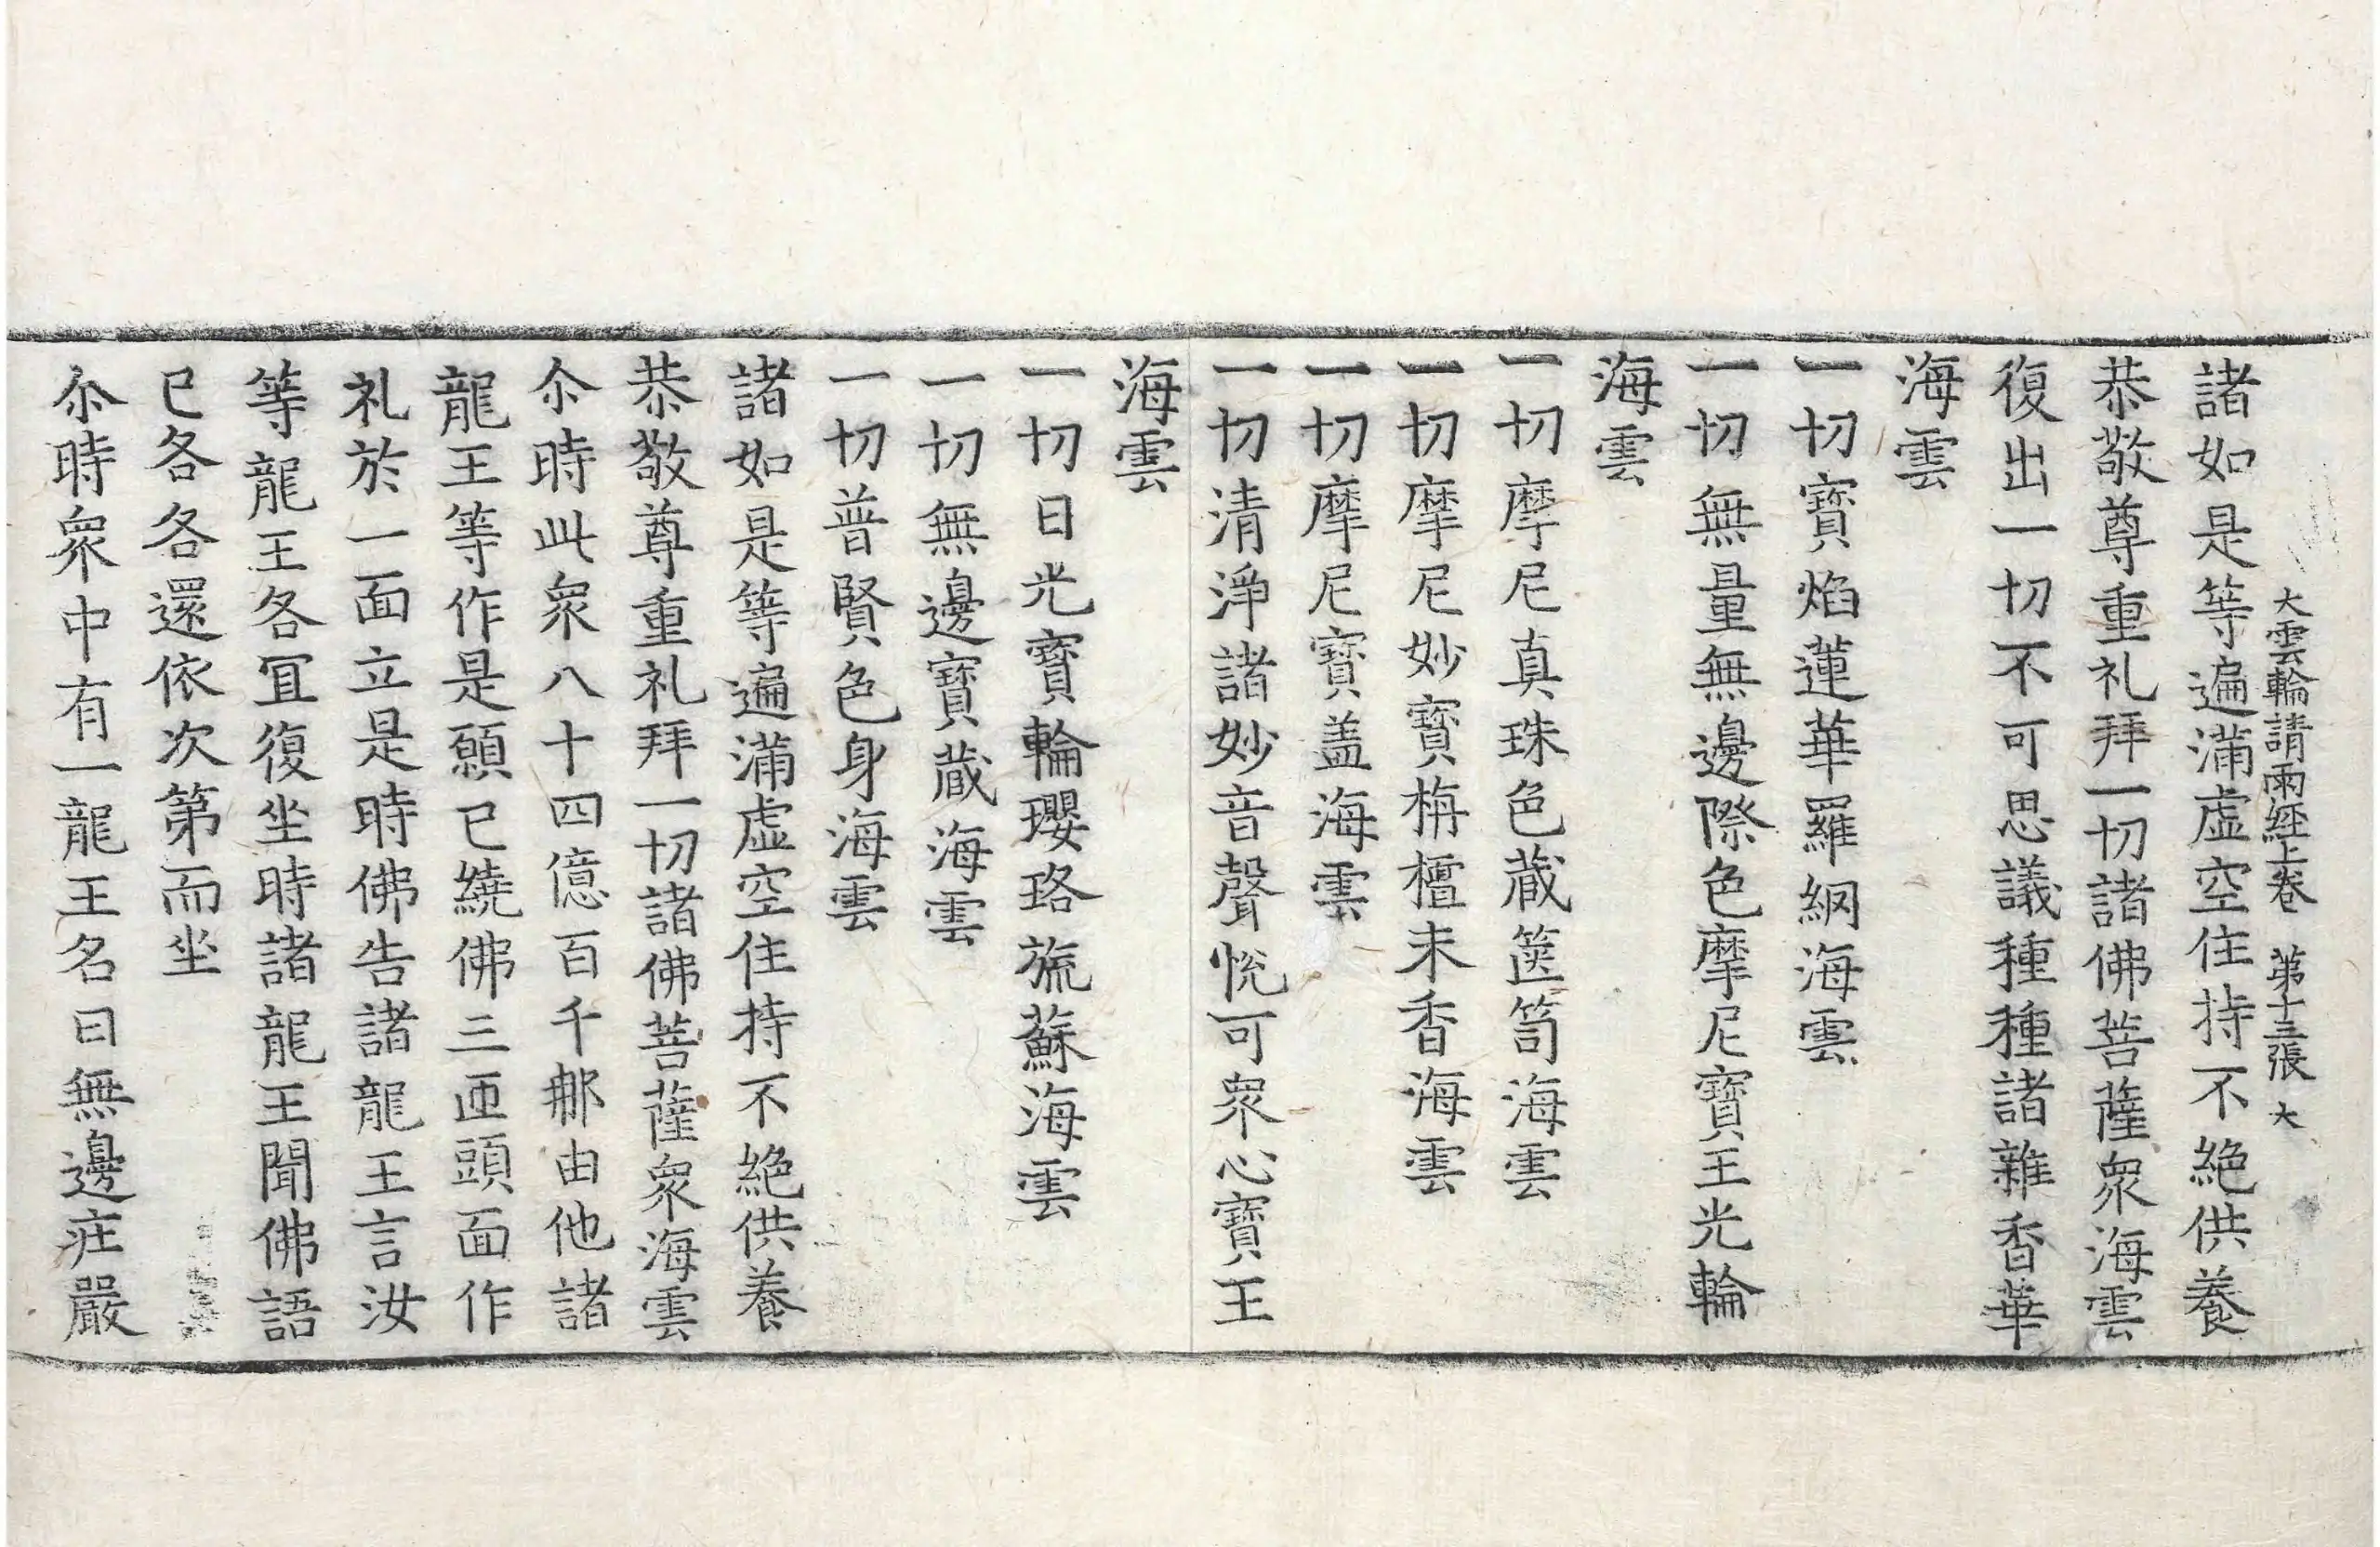 大雲輪請雨經上卷 第十三張 大
諸如是等遍滿虛空住持不絕供養
恭敬尊重礼拜一切諸佛菩薩衆海雲
復出一切不可思議種種諸雜香華
海雲
一切寶焰蓮華羅網海雲
一切無量無邊際色摩尼寶王光輪
海雲
一切摩尼真珠色蔵篋笥海雲
一切摩尼妙寶栴檀末香海雲
一切摩尼寶盖海雲
一切清淨諸妙音聲悅可衆心寶王
海雲
一切日光寶輪瓔珞旒蘇海雲
一切無邊寶蔵海雲
一切普賢色身海雲
諸如是等遍滿虛空住持不絕供養
恭敬尊重礼拜一切諸佛菩薩衆海雲
尒時此衆八十四億百千那由他諸
龍王等作是願已繞佛三匝頭面作
礼於一面立是時佛告諸龍王言汝
等龍王各冝復坐時諸龍王聞佛語
已各各還依次第而坐
尒時衆中有一龍王名曰無邊庄嚴